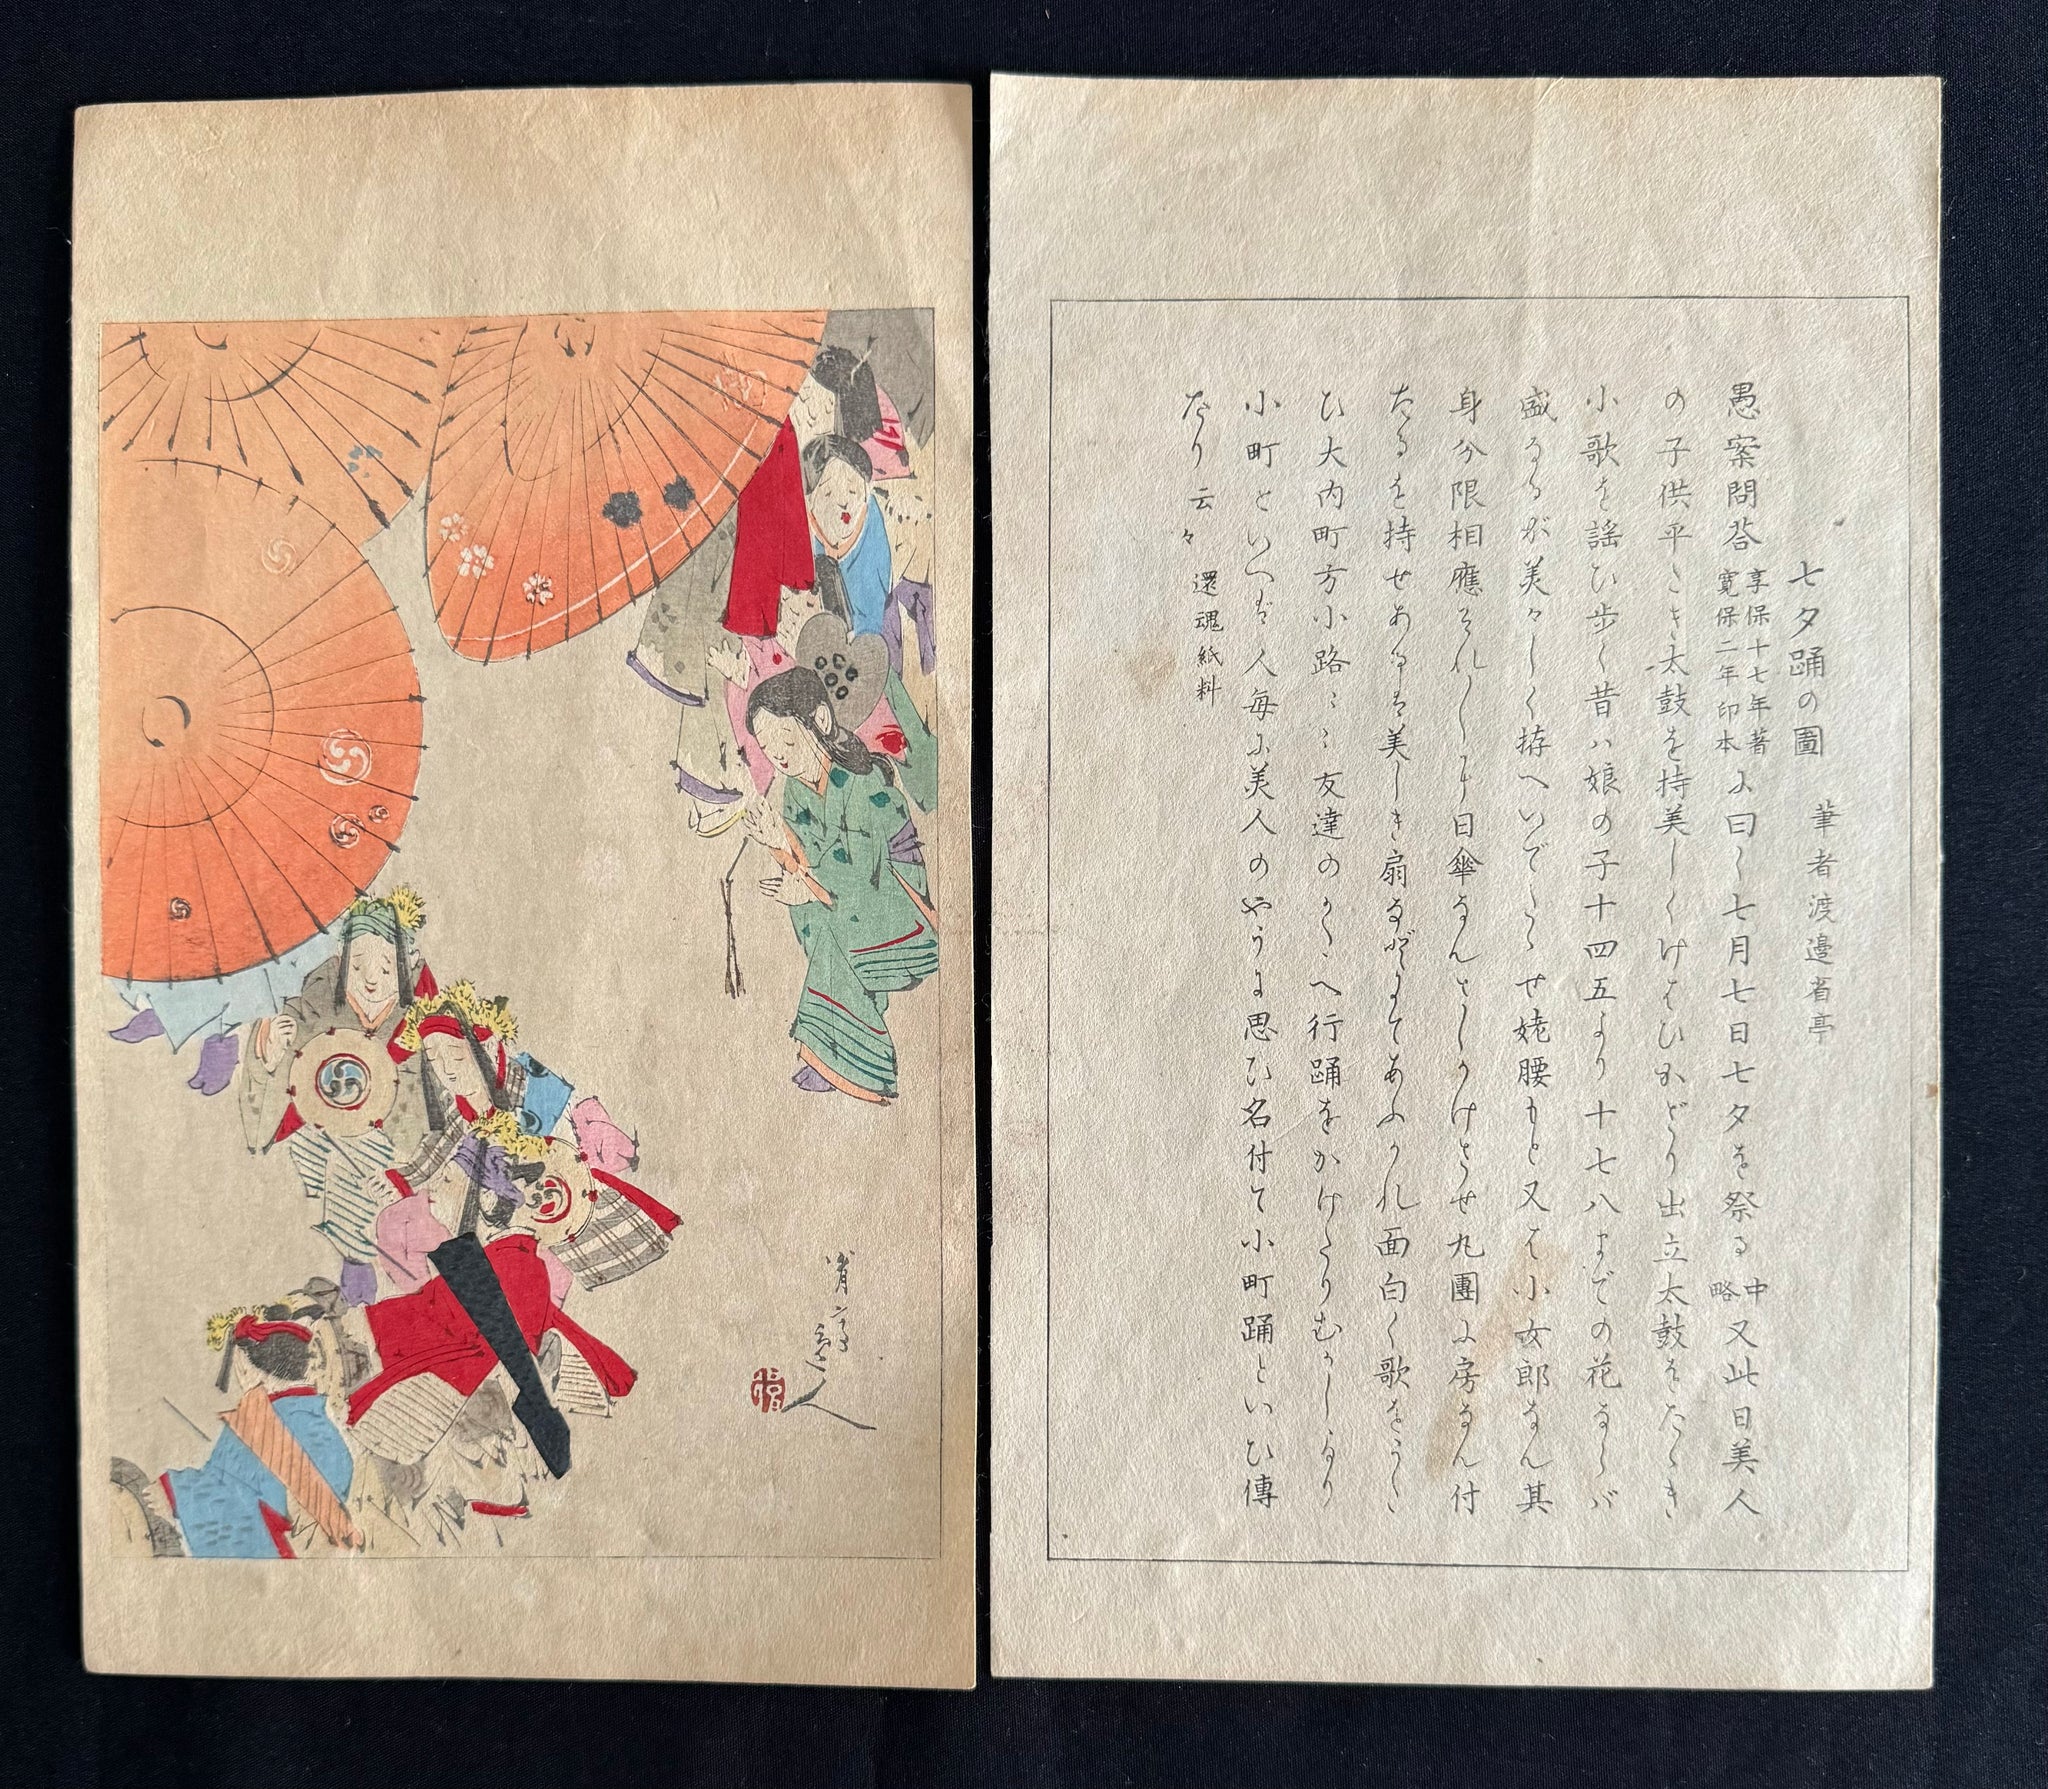 七夕踊の圖 筆者渡邉省亭
愚案問答享保十七年著寛保二年印本よ曰く七月七日七夕を祭る中略又此日美人
の子供平こき太鼓を持美しくけはひかざり出立太鼓をたゝき
小歌を謡ひ歩く昔ハ娘の子十四五より十七八までの花ならバ
盛なるが美々しく拵へいでたゝせ姥腰もと又は小女郎なん其
身分限相應それ〳〵に日傘なんさしかけさせ丸團に房なん付
たるを持せあるは美しき扇などにてあふかれ面白く歌をうた
ひ大内町方小路〻〻友達のかたへ行踊をかけたりむかしより
小町といへば人毎に美人のやうに思ひ名付て小町踊といひ傳
たり云々 還魂紙料
省亭逸人